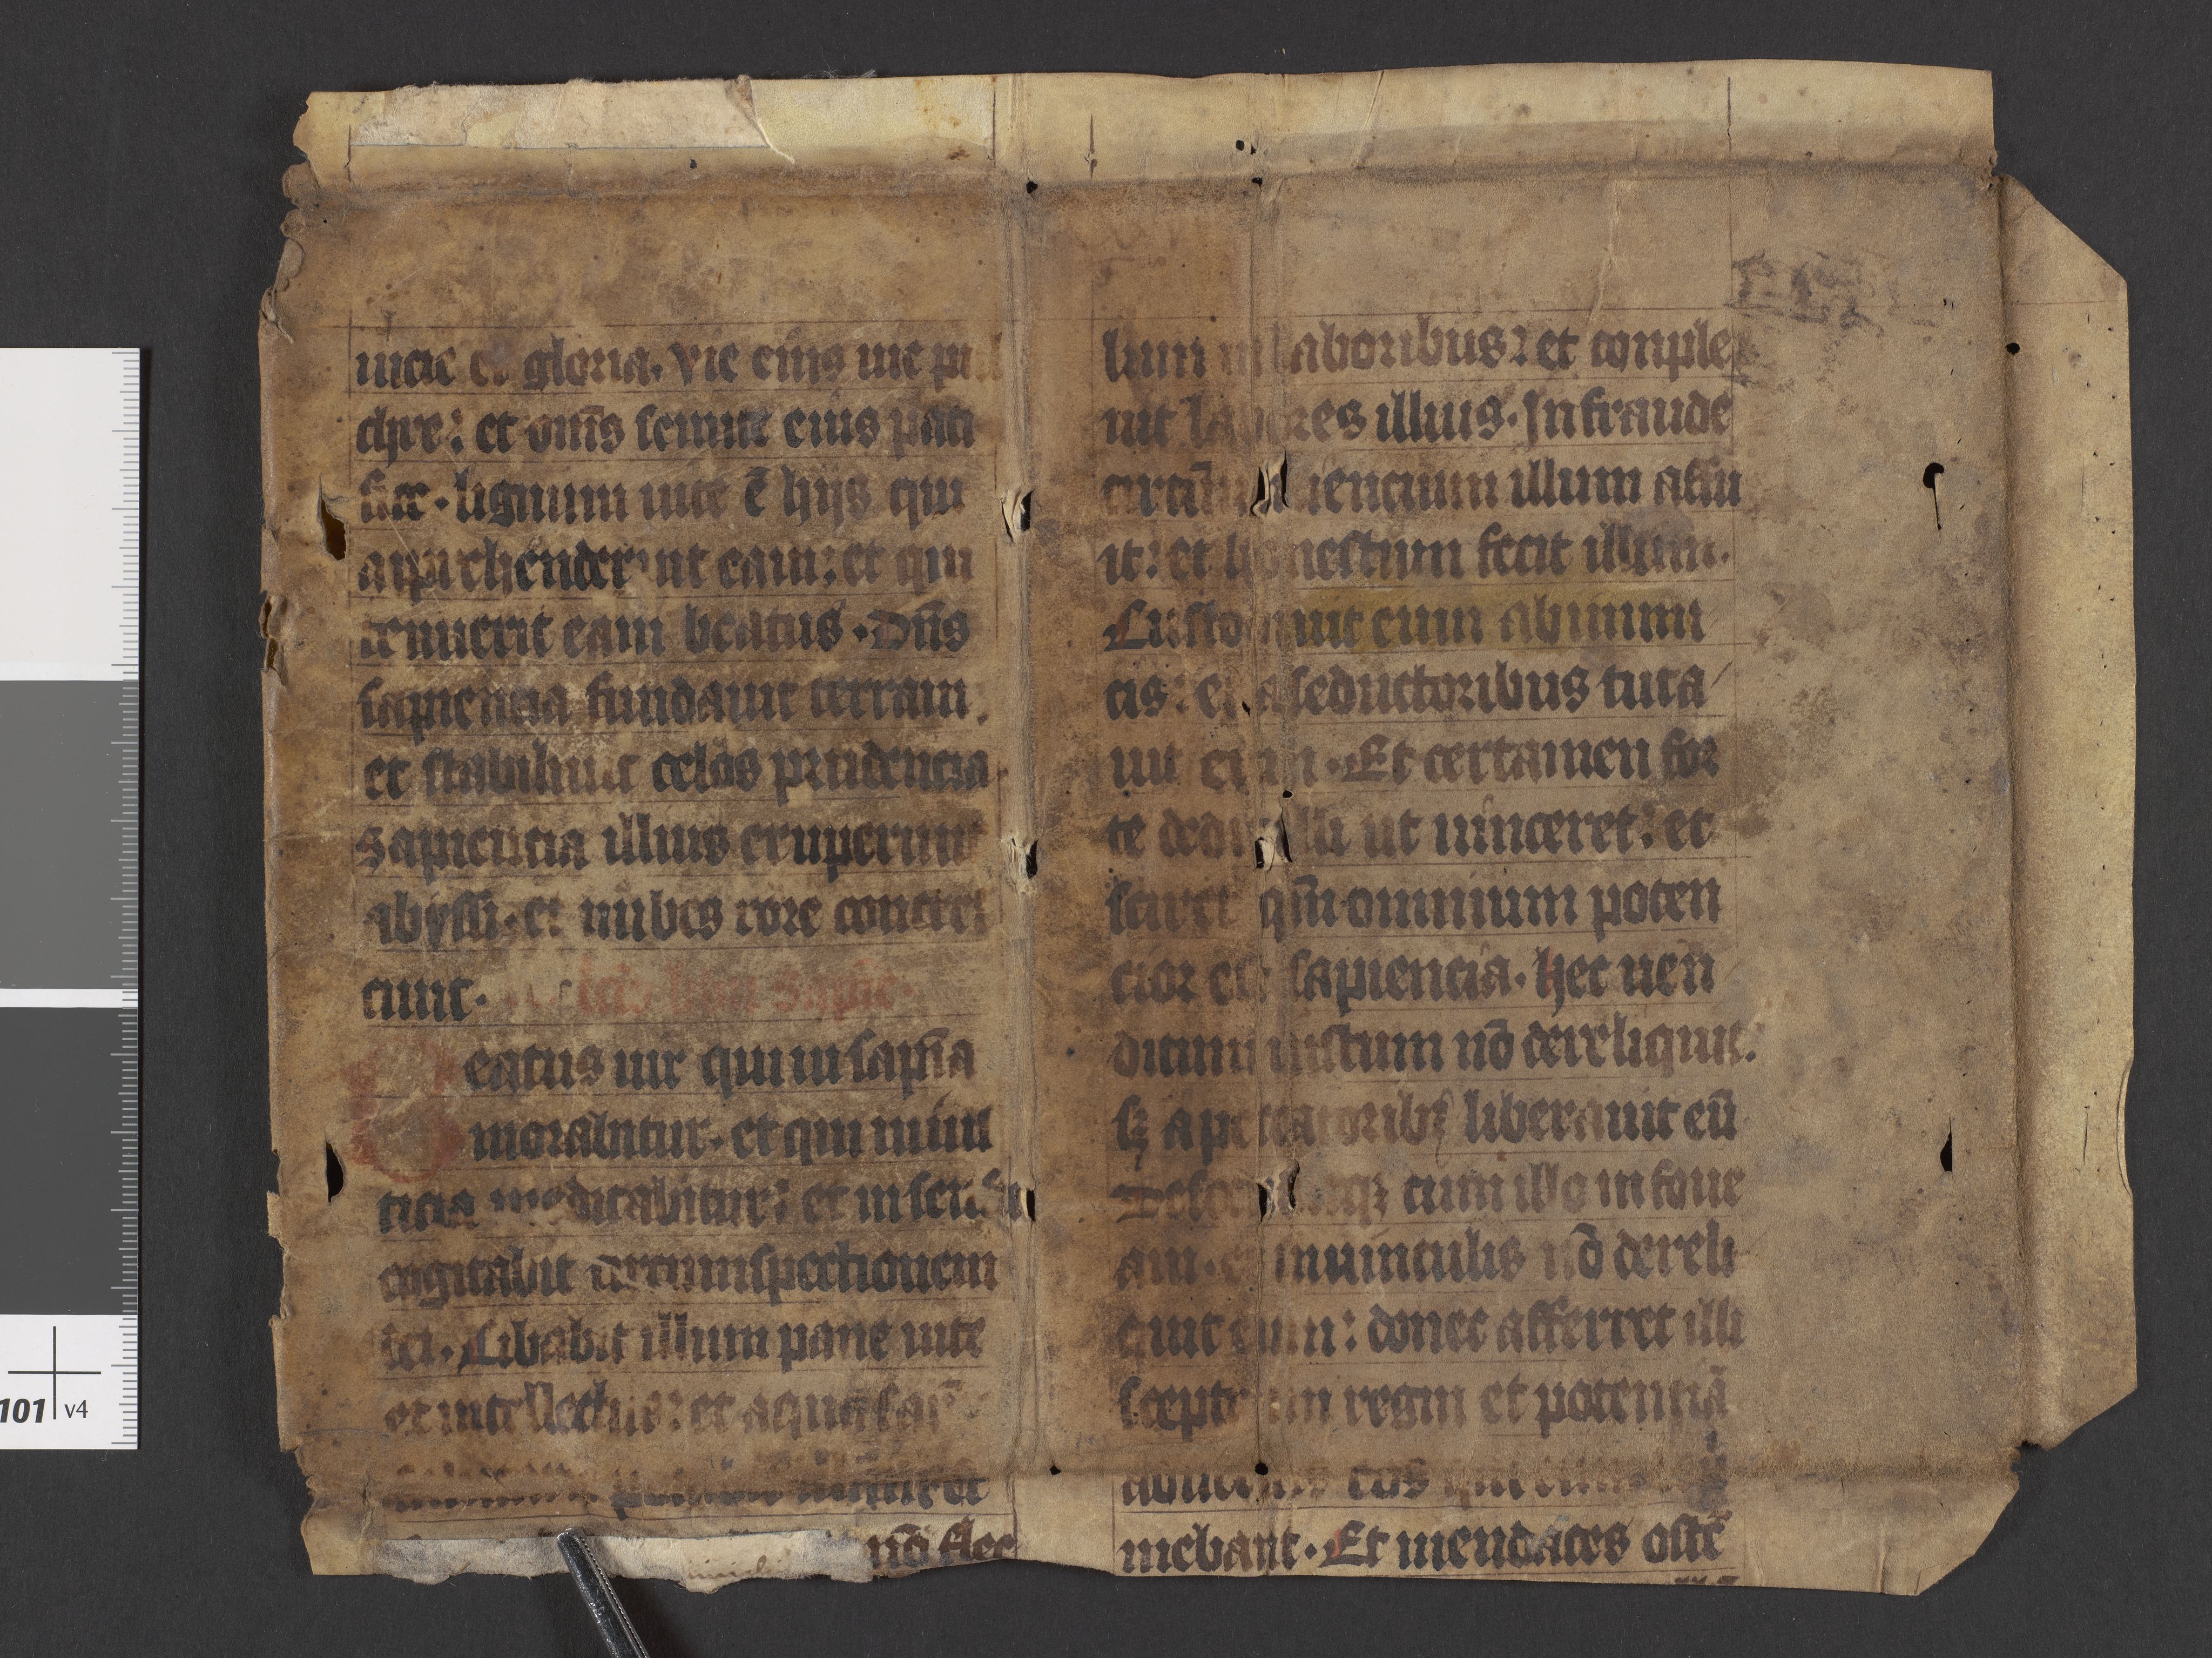 uicie et gloria. vie eius uie pul
chre: et om̄s semite eius paci
fice. lignum uite ē hijs qui
apprehenderint eam: et qui
tenuerit eam beatus. Dn̄s
sapiencia fundauit terram.
et stabiliuit celos prudencia
Sapiencia illius eruperunt
abyssi. et nubes rore concres
cunt. lc̄o libri Sapīe.
Beatus uir qui in sapīa
morabitur. et qui in iusti
ticia meditabitur: et in sensu
cogitabit circumspectionem
dei. Cibabit illum pane uite
et intellectus: et aqua sap
et
nō flec
lum in laboribus: et conple
uit labores illius. In fraude
circūueniencium illum affu
it: et honestum fecit illum.
Custodiuit eum ab inimi
cis: et a seductoribus tuta
uit eum. Et certamen for
te dedit illi ut uinceret: et
sciret qm̄ omnium poten
cior est sapiencia. hec uen
ditum iustum nō dereliquit.
sꝫ a peccatoribꝫ liberauit eū
Descenditqꝫ cum illo in foue
am. et in uinculis nō dereli
quit eum: donec afferret illi
sceptrum regni et potenciā
aduersus eos qui eum
mebant. Et mendaces ostē